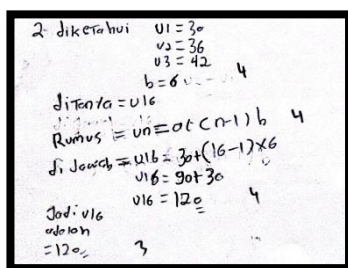 2 diketahui U1 = 30
U2 = 36
U3 = 42
b = 6 4
diTanta = U16
Rumus = Un = a+(n-1)b 4
di Jawab = U16 = 30+(16-1)×6
U16 = 90+30
U16 = 120 4
Jadi U16
adalah
= 120 3